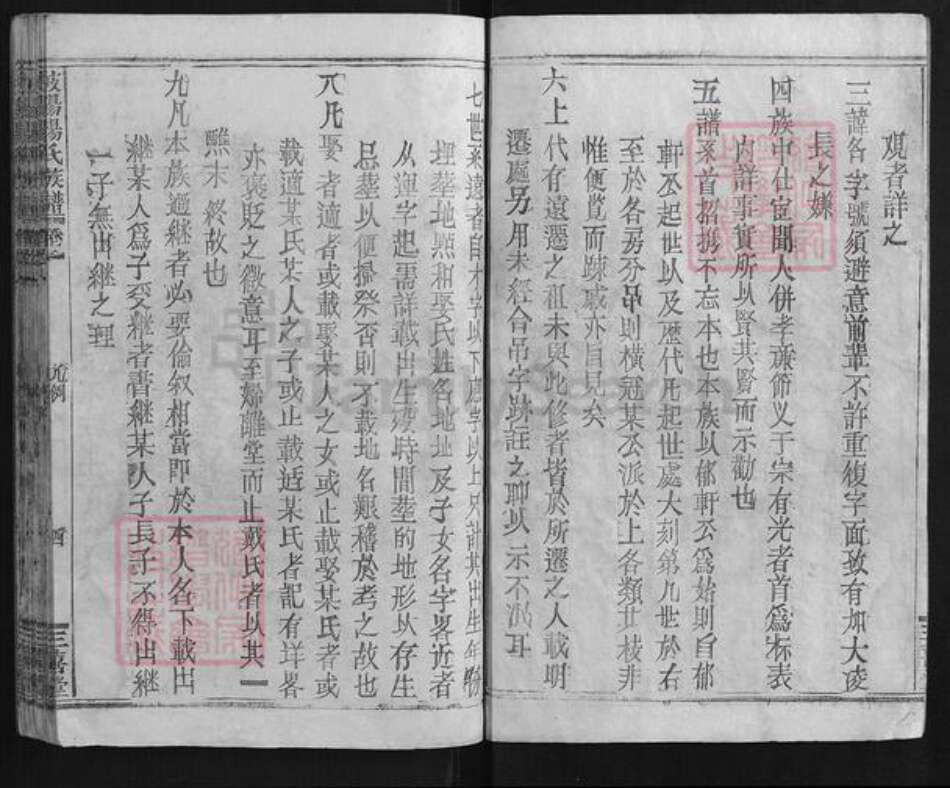 观者詳之
三諱各字號須避意前輩不許重復字面致有加大凌
長之嫌
四族中仕宦聞人併孝廉節义于宗有光者首爲标表
内詳事實所以賢其賢而示勸也
五譜系首招携不忘本也本族以郁軒公爲始則自郁
軒公起世以及歷代凡起世處大刻第几世於右
至於各房分吊則橫冠某公派於上各類廿枝非
惟便覽而踈戚亦自見矣
六上代有遠遷之祖未與此修者皆於所遷之人載明
遷處另用未經合吊字跡註之聊以示不泯耳
七世系遠者自木字以下應字以上只計其出生年
埋塟地㸃和娶氏姓各地址及子女名字畧近者
从運字起需詳載出生歿時間塟的地形以存生
忌塟以便掃祭否則不載地名艱稽於考之故也
八凡娶者適者或載娶某人之女或止載娶某氏者或
载適某氏某人之子或止載适某氏者記有详畧
亦褒貶之微意耳至婦離堂而止載氏者以其一
醮未終故也
九凡本族適継者必要倫叙相當即於本人名下載出
継某人爲子受継者書継某人子長子不得出継
一子無出継之理
陽氏族譜
凡例
三